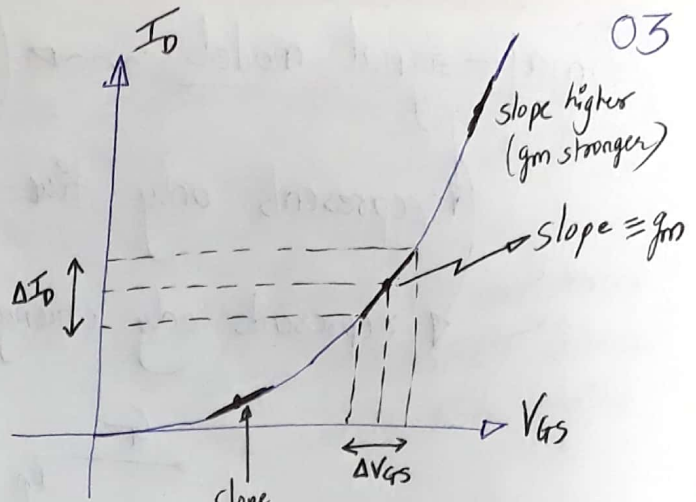 I_D
03
slope higher
(gm stronger)
slope ≡ gm
ΔI_D
V_GS
ΔV_GS
slope